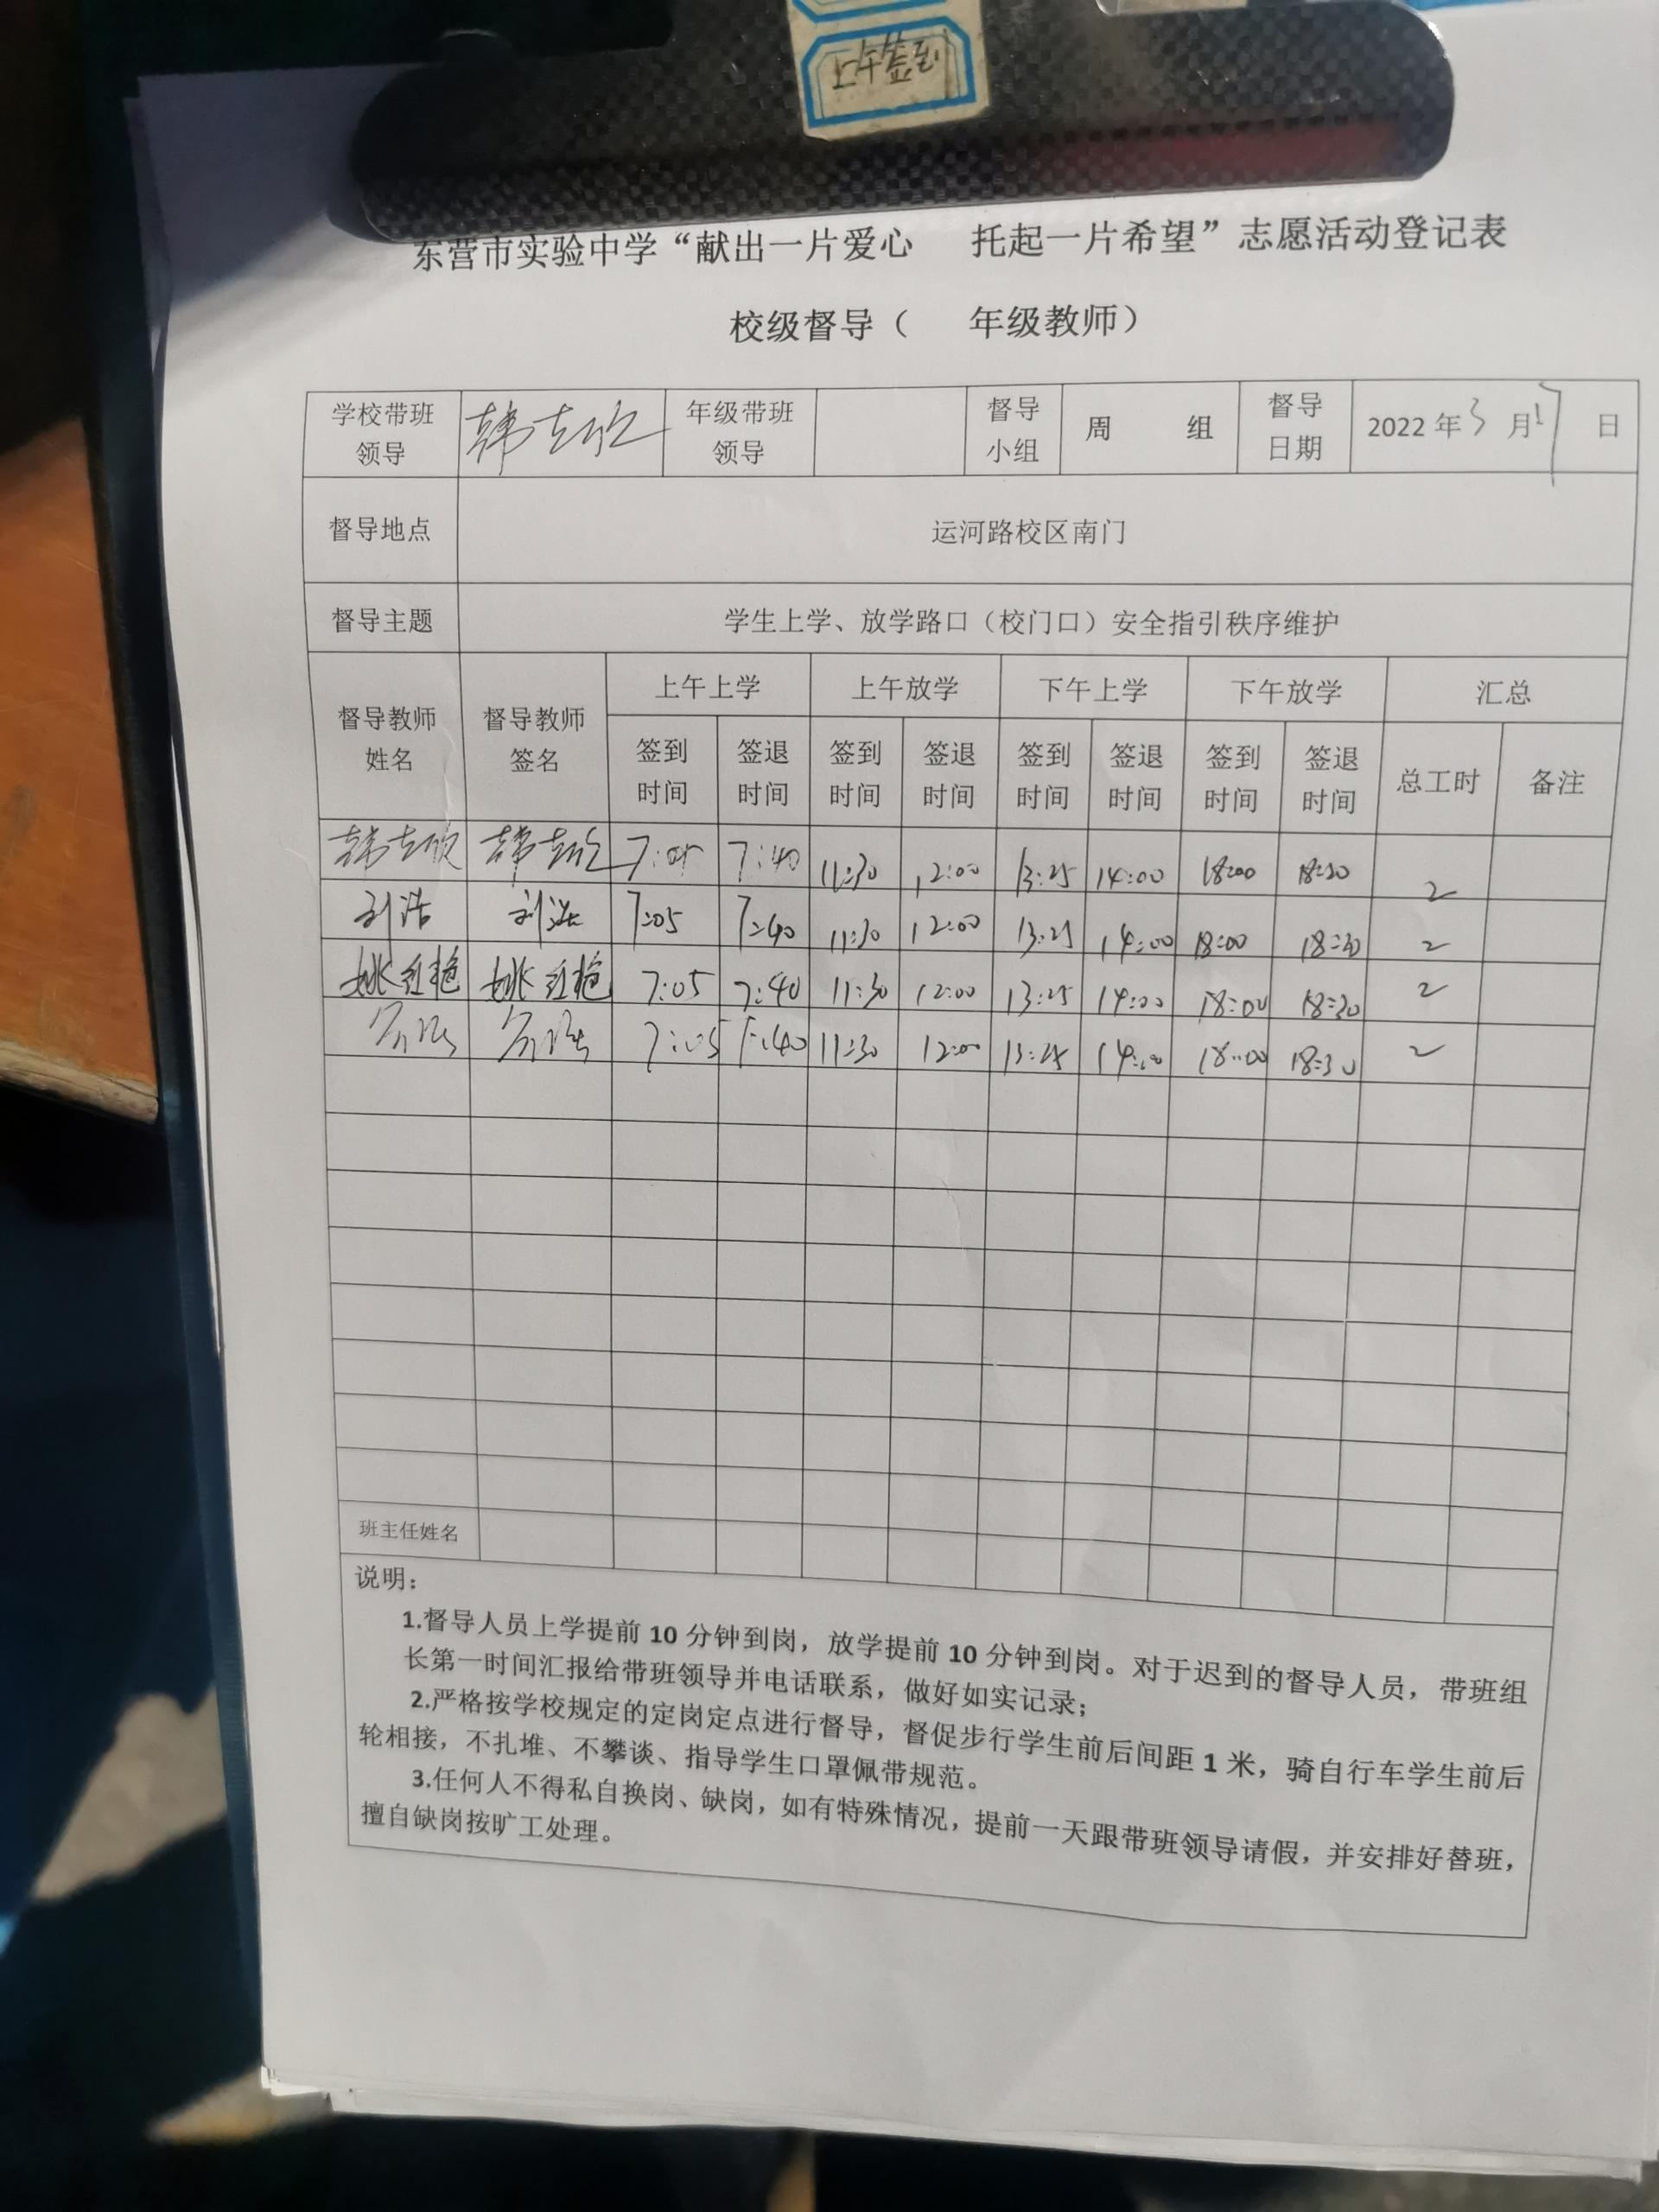 上午签到
东营市实验中学“献出一片爱心 托起一片希望”志愿活动登记表
校级督导（ 年级教师）
学校带班领导 年级带班领导 督导小组 周 组 督导日期 2022年3月17日
督导地点 运河路校区南门
督导主题 学生上学、放学路口（校门口）安全指引秩序维护
督导教师姓名 督导教师签名 上午上学 上午放学 下午上学 下午放学 汇总
签到时间 签退时间 签到时间 签退时间 签到时间 签退时间 签到时间 签退时间 总工时 备注
7:05 7:40 11:30 12:00 13:25 14:00 18:00 18:30 2
刘浩 刘浩 7:05 7:40 11:30 12:00 13:25 14:00 18:00 18:30 2
姚红艳 姚红艳 7:05 7:40 11:30 12:00 13:25 14:00 18:00 18:30 2
7:05 7:40 11:30 12:00 13:25 14:00 18:00 18:30 2
班主任姓名
说明：
1.督导人员上学提前10分钟到岗，放学提前10分钟到岗。对于迟到的督导人员，带班组
长第一时间汇报给带班领导并电话联系，做好如实记录；
2.严格按学校规定的定岗定点进行督导，督促步行学生前后间距1米，骑自行车学生前后
轮相接，不扎堆、不攀谈、指导学生口罩佩带规范。
3.任何人不得私自换岗、缺岗，如有特殊情况，提前一天跟带班领导请假，并安排好替班，
擅自缺岗按旷工处理。